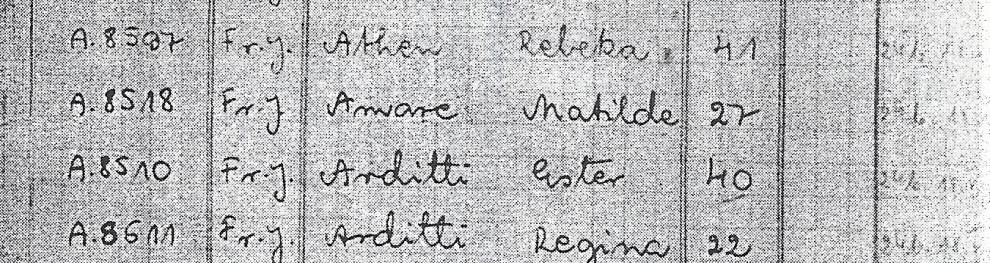 A.8507 Fr.J. Athen Rebeka 41
A.8518 Fr.J Amare Matilde 27
A.8510 Fr.J. Arditti Ester 40
A.8511 Fr.J. Arditti Regina 22